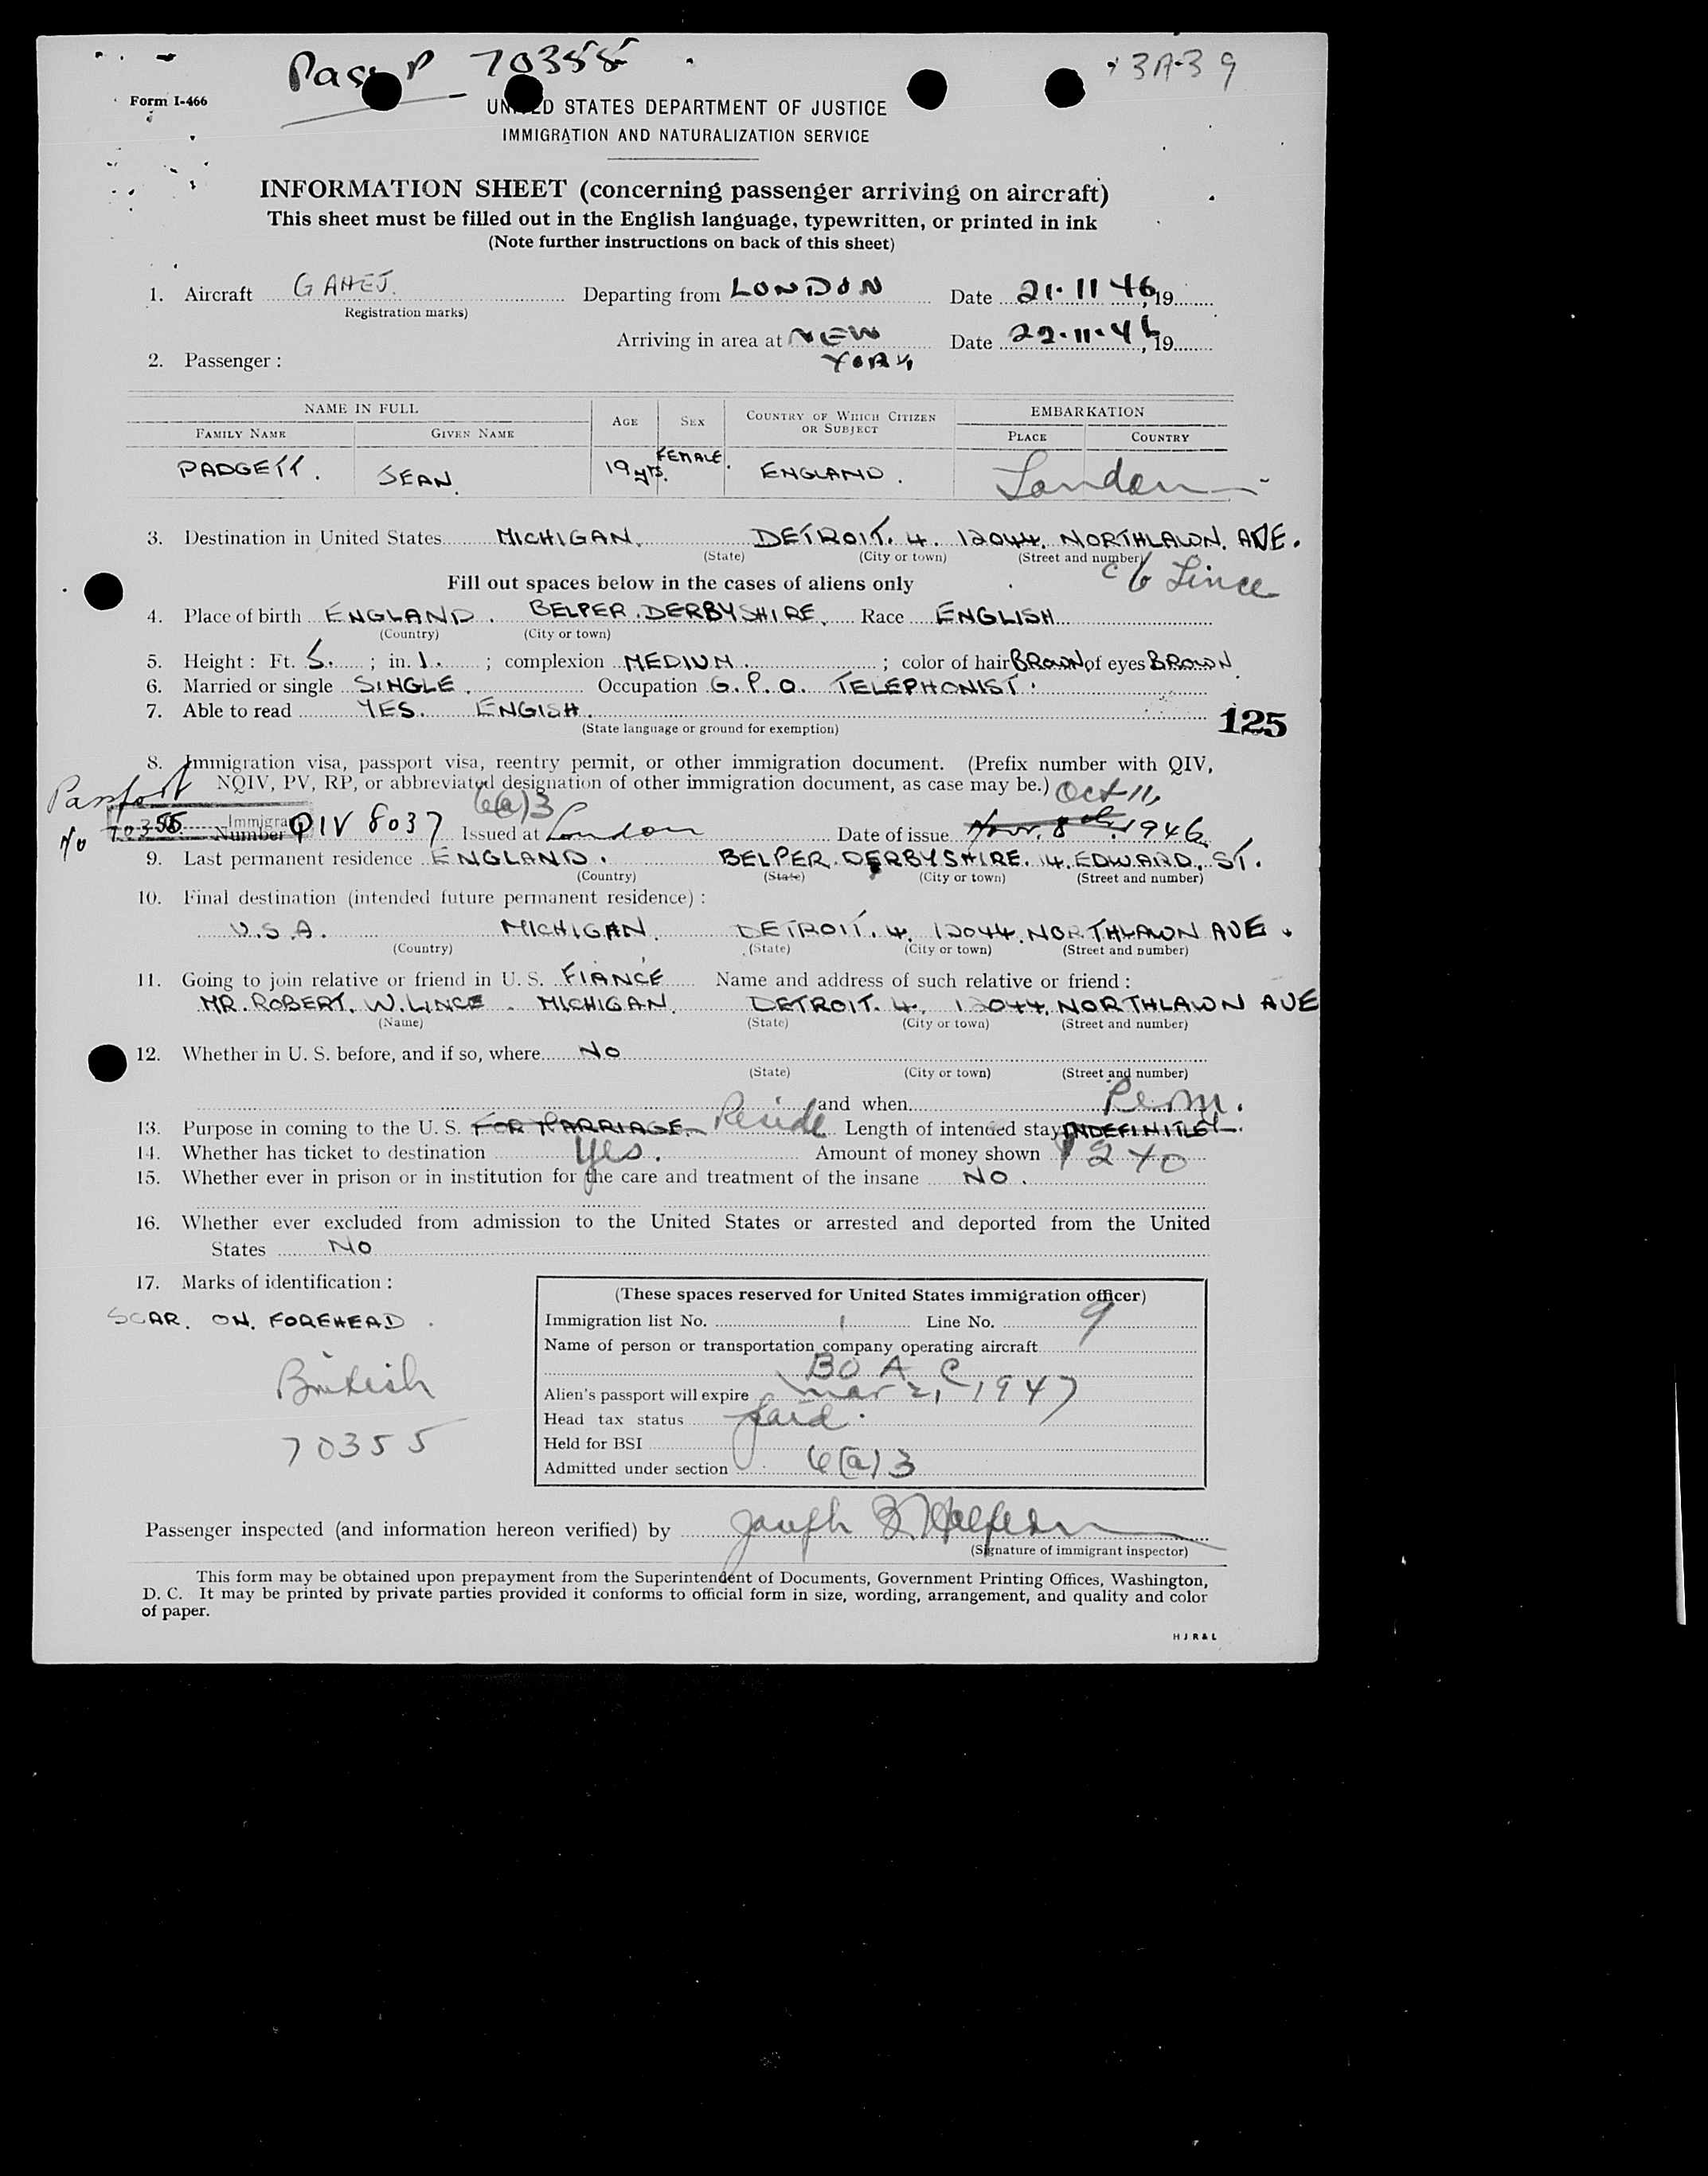 Pass P 70355
3A-39
Form I-466
UNITED STATES DEPARTMENT OF JUSTICE
IMMIGRATION AND NATURALIZATION SERVICE
INFORMATION SHEET (concerning passenger arriving on aircraft)
This sheet must be filled out in the English language, typewritten, or printed in ink
(Note further instructions on back of this sheet)
1. Aircraft G AHEJ. Departing from LONDON Date 21.11.46, 19
Registration marks)
Arriving in area at NEW YORK Date 22.11.46, 19
2. Passenger :
NAME IN FULL AGE SEX COUNTRY OF WHICH CITIZEN OR SUBJECT EMBARKATION
FAMILY NAME GIVEN NAME PLACE COUNTRY
PADGETT. JEAN. 19 yrs. FEMALE. ENGLAND. London
3. Destination in United States MICHIGAN. DETROIT. 4. 12044. NORTHLAWN. AVE.
(State) (City or town) (Street and number)
c/o Lince
Fill out spaces below in the cases of aliens only
4. Place of birth ENGLAND. BELPER. DERBYSHIRE. Race ENGLISH
(Country) (City or town)
5. Height : Ft. 5. ; in. 1. ; complexion MEDIUM. ; color of hair BROWN of eyes BROWN
6. Married or single SINGLE. Occupation G.P.O. TELEPHONIST.
7. Able to read YES. ENGISH.
(State language or ground for exemption)
125
8. Immigration visa, passport visa, reentry permit, or other immigration document. (Prefix number with QIV,
NQIV, PV, RP, or abbreviated designation of other immigration document, as case may be.) Oct 11,
Passport 6(a)3
No 70355 Immigra
Number QIV 8037 Issued at London Date of issue Nov. 8th. 1946
9. Last permanent residence ENGLAND. BELPER. DERBYSHIRE. 14. EDWARD. ST.
(Country) (State) (City or town) (Street and number)
10. Final destination (intended future permanent residence) :
U.S.A. MICHIGAN. DETROIT. 4. 12044. NORTHLAWN AVE.
(Country) (State) (City or town) (Street and number)
11. Going to join relative or friend in U. S. FIANCE Name and address of such relative or friend :
MR. ROBERT. W. LINCE. MICHIGAN. DETROIT. 4. 12044. NORTHLAWN AVE
(Name) (State) (City or town) (Street and number)
12. Whether in U. S. before, and if so, where NO
(State) (City or town) (Street and number)
and when
Perm.
13. Purpose in coming to the U. S. FOR MARRIAGE. Reside Length of intended stay INDEFINITLEY.
14. Whether has ticket to destination Yes. Amount of money shown $240
15. Whether ever in prison or in institution for the care and treatment of the insane NO.
16. Whether ever excluded from admission to the United States or arrested and deported from the United
States NO
17. Marks of identification :
SCAR. ON. FOREHEAD.
British
70355
(These spaces reserved for United States immigration officer)
Immigration list No. 1 Line No. 9
Name of person or transportation company operating aircraft
BOAC
Alien's passport will expire Mar 21, 1947
Head tax status Paid.
Held for BSI
Admitted under section 6(a)3
Passenger inspected (and information hereon verified) by Joseph
(Signature of immigrant inspector)
This form may be obtained upon prepayment from the Superintendent of Documents, Government Printing Offices, Washington,
D. C. It may be printed by private parties provided it conforms to official form in size, wording, arrangement, and quality and color
of paper.
H J R & L